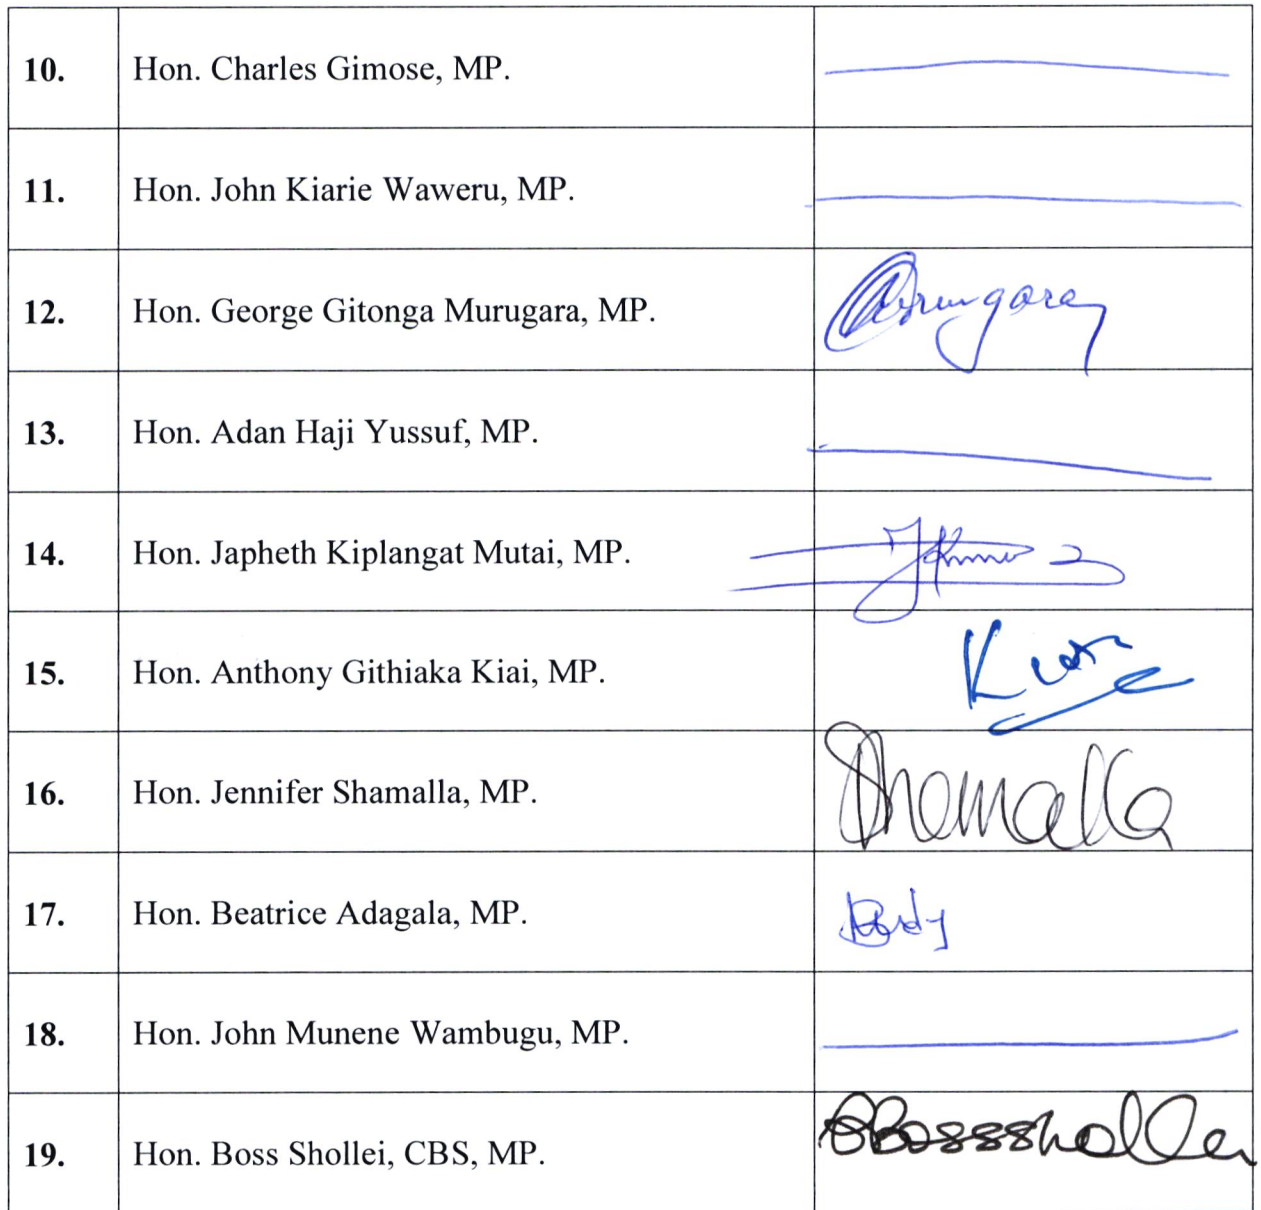 10. Hon. Charles Gimose, MP.
11. Hon. John Kiarie Waweru, MP.
12. Hon. George Gitonga Murugara, MP.
13. Hon. Adan Haji Yussuf, MP.
14. Hon. Japheth Kiplangat Mutai, MP.
15. Hon. Anthony Githiaka Kiai, MP.
16. Hon. Jennifer Shamalla, MP. Shamalla
17. Hon. Beatrice Adagala, MP.
18. Hon. John Munene Wambugu, MP.
19. Hon. Boss Shollei, CBS, MP.